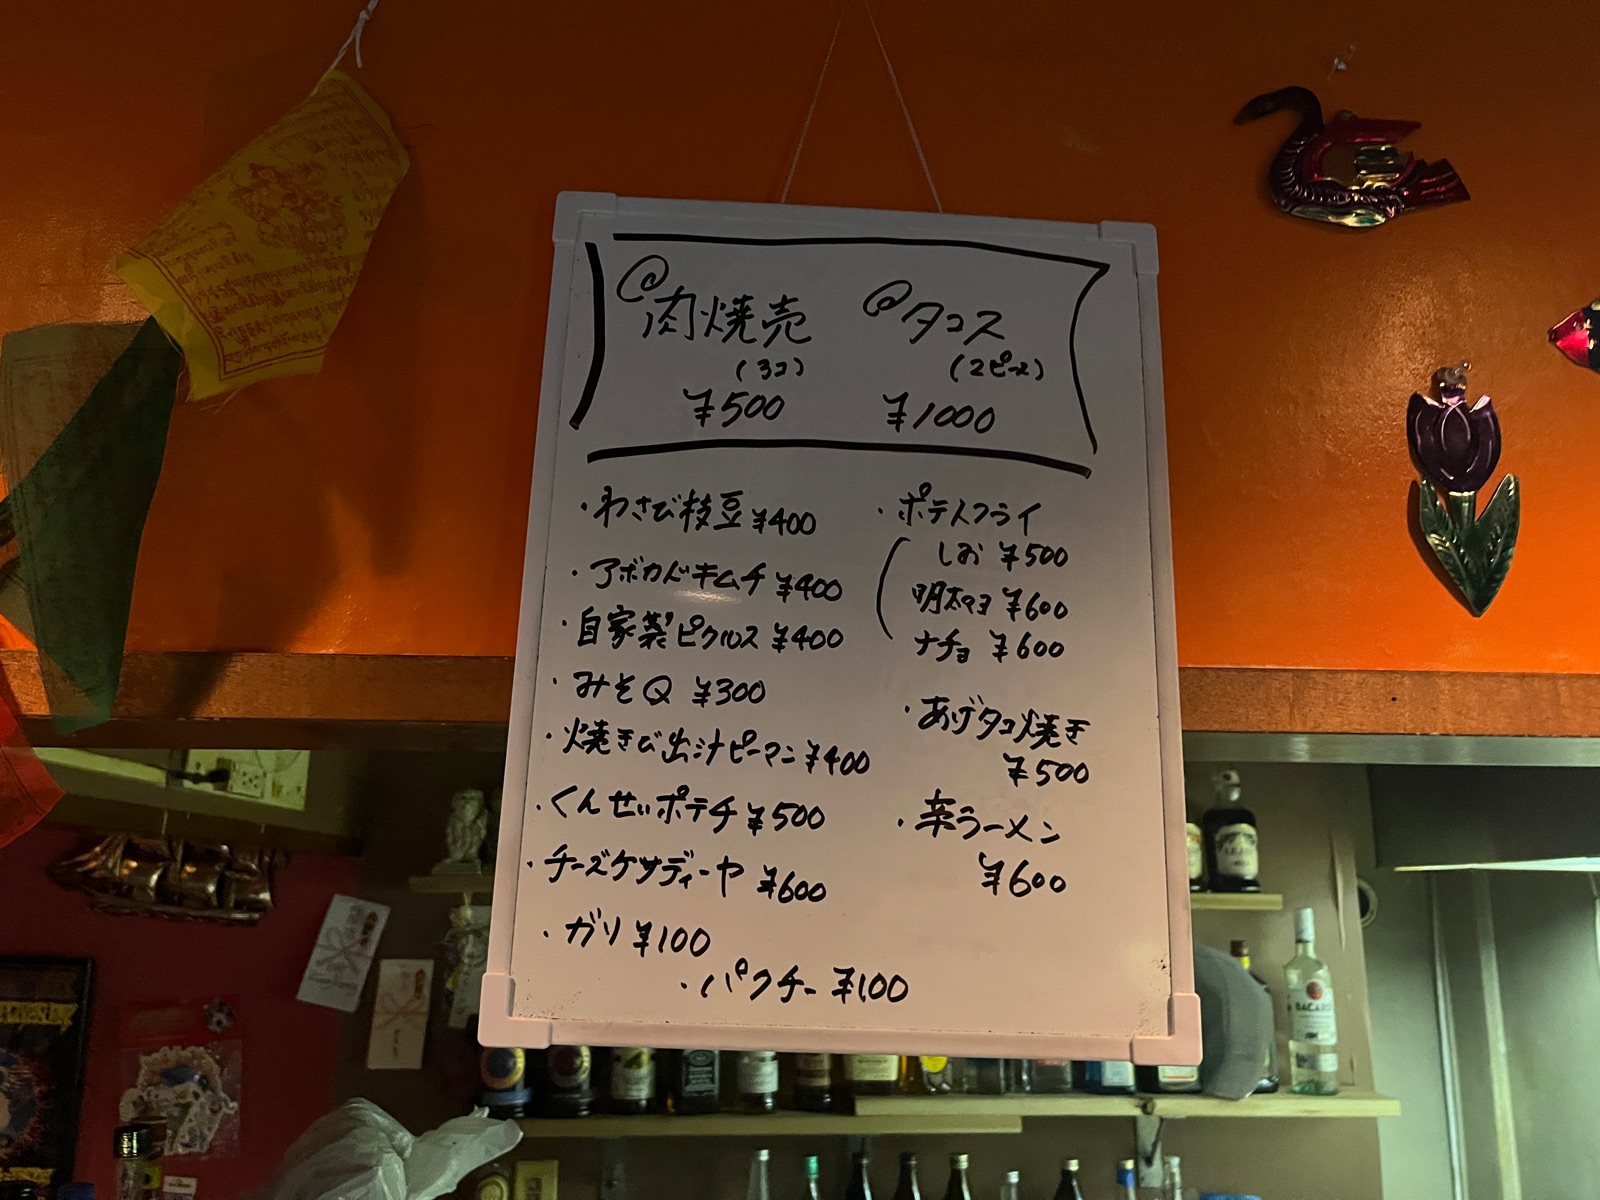 @肉焼売
(3コ)
¥500
@タコス
(2ピース)
¥1000
・わさび枝豆 ¥400
・アボカドキムチ ¥400
・自家製ピクルス ¥400
・みそQ ¥300
・焼きび出汁ピーマン ¥400
・くんせいポテチ ¥500
・チーズケサディーヤ ¥600
・ガリ ¥100
・パクチー ¥100
・ポテトフライ
しお ¥500
明太マヨ ¥600
ナチョ ¥600
・あげタコ焼き
¥500
・辛ラーメン
¥600
BACARDI